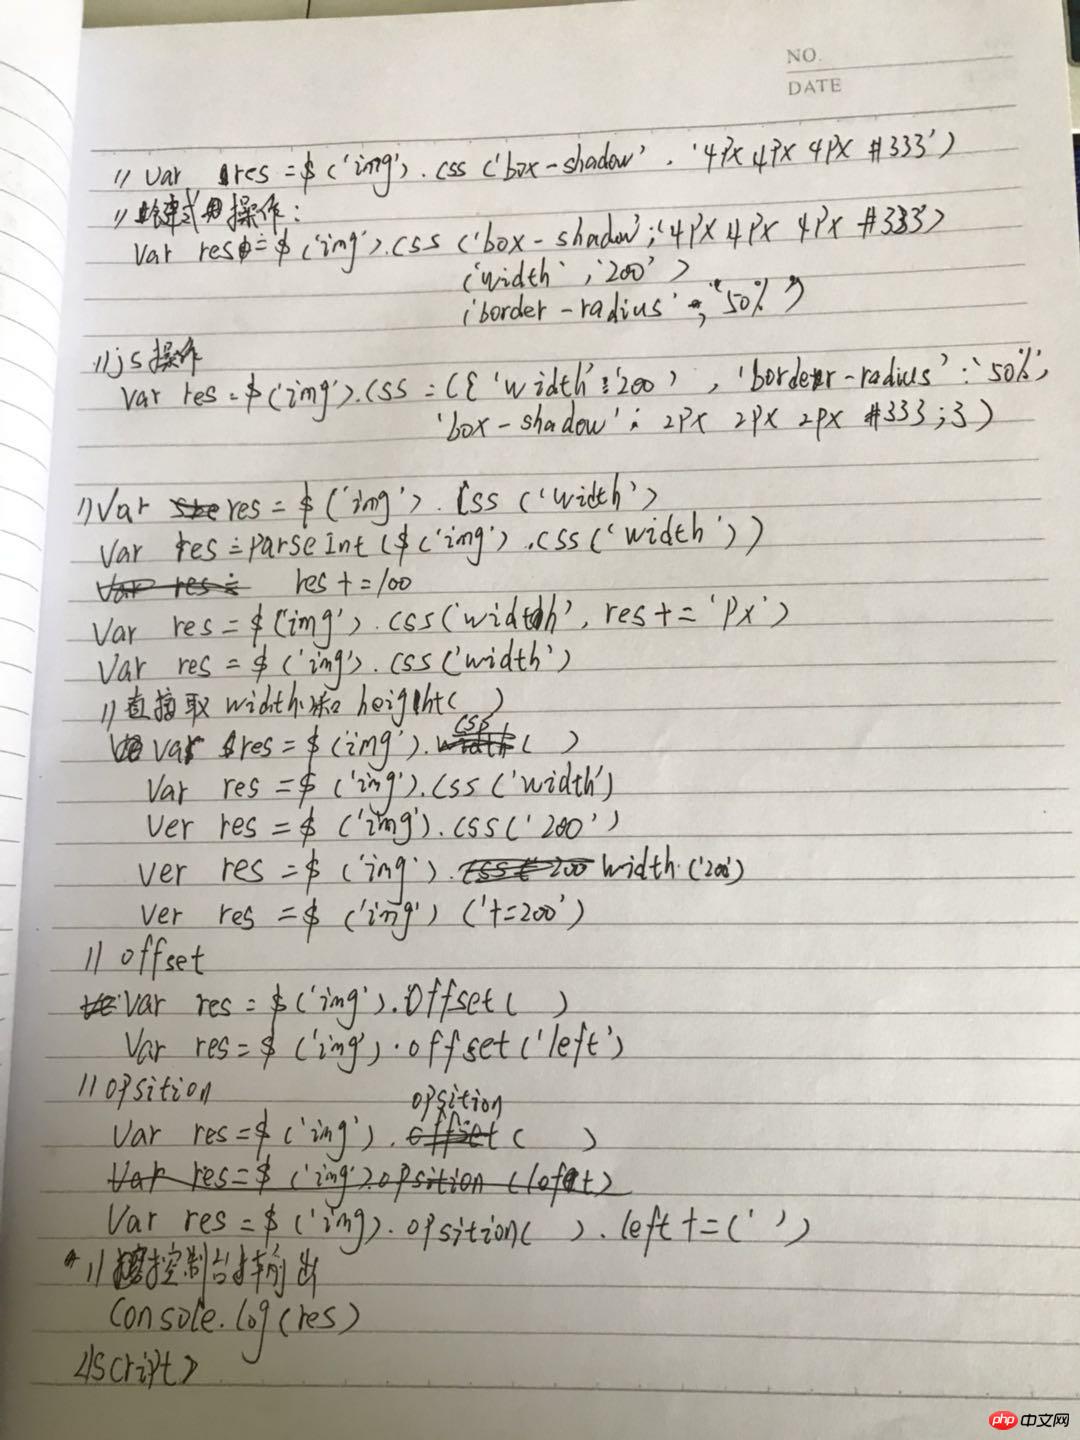 NO.
DATE
// var res = $('img').css('box-shadow', '4px 4px 4px #333')
// 式 操作:
var res = $('img').css('box-shadow','4px 4px 4px #333)
('width','200')
('border-radius', '50%')
//js操作
var res = $('img').css = ({'width':'200), 'border-radius':'50%',
'box-shadow': 2px 2px 2px #333;})
//var res = $('img').css('width')
var res = parseInt($('img').css('width'))
res += 100
var res = $('img').css('width', res += 'px')
var res = $('img').css('width')
//直接取width和height()
var res = $('img').css()
var res = $('img').css('width')
ver res = $('img').css('200')
ver res = $('img').width('200')
ver res = $('img')('+=200')
// offset
var res = $('img').offset()
var res = $('img').offset('left')
//opsition
var res = $('img').opsition()
var res = $('img').opsition(left)
var res = $('img').opsition().left += ('')
// 控制台 出
console.log(res)
</script>
php中文网